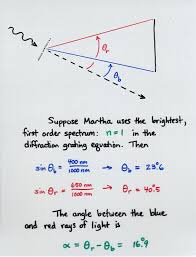 θr
θb
Suppose Martha uses the brightest,
first order spectrum: n = 1 in the
diffraction grating equation. Then
sin θb = 400 nm / 1000 nm → θb = 23°6
sin θr = 650 nm / 1000 nm → θr = 40°5
The angle between the blue
and red rays of light is
α = θr - θb = 16°9